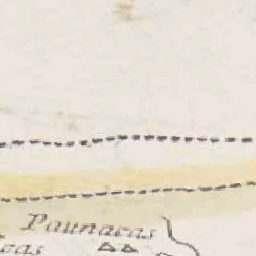 Paunacas
cas